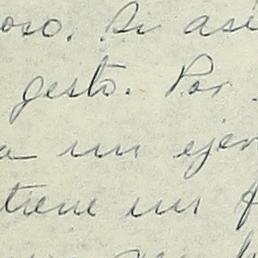 oso. Si así
gesto. Por
a un ejer
tiene un f